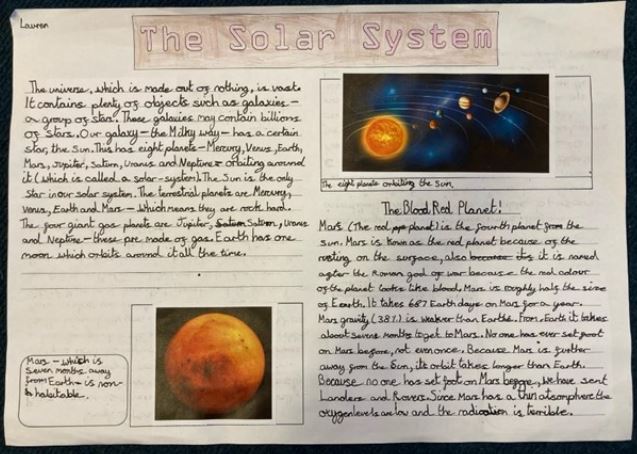 Lauren
The Solar System
The universe, which is made out of nothing, is vast.
It contains plenty of objects such as galaxies –
a group of stars. These galaxies may contain billions
of stars. Our galaxy – the Milky way – has a certain
star, the Sun. This has eight planets – Mercury, Venus, Earth,
Mars, Jupiter, Saturn, Uranus and Neptune orbiting around
it (which is called a solar-system). The Sun is the only
star in our solar system. The terrestrial planets are Mercury,
Venus, Earth and Mars – which means they are rock hard.
The four giant gas planets are Jupiter, Saturn, Uranus
and Neptune – these are made of gas. Earth has one
moon which orbits around it all the time.
Mars – which is
seven months away
from Earth – is non-
habitable.
The eight planets orbiting the Sun.
The Blood Red Planet!
Mars (The red planet) is the fourth planet from the
sun. Mars is known as the red planet because of the
rusting on the surface, also it is named
after the Roman god of war because the red colour
of the planet looks like blood. Mars is roughly half the size
of Earth. It takes 687 Earth days on Mars for a year.
Mars gravity (38%) is weaker than Earths. From Earth it takes
about seven months to get to Mars. No one has ever set foot
on Mars before, not even once. Because Mars is further
away from the Sun, its orbit takes longer than Earth.
Because no one has set foot on Mars before, we have sent
Landers and Rovers. Since Mars has a thin atsomphere the
oxygen levels are low and the radioation is terrible.